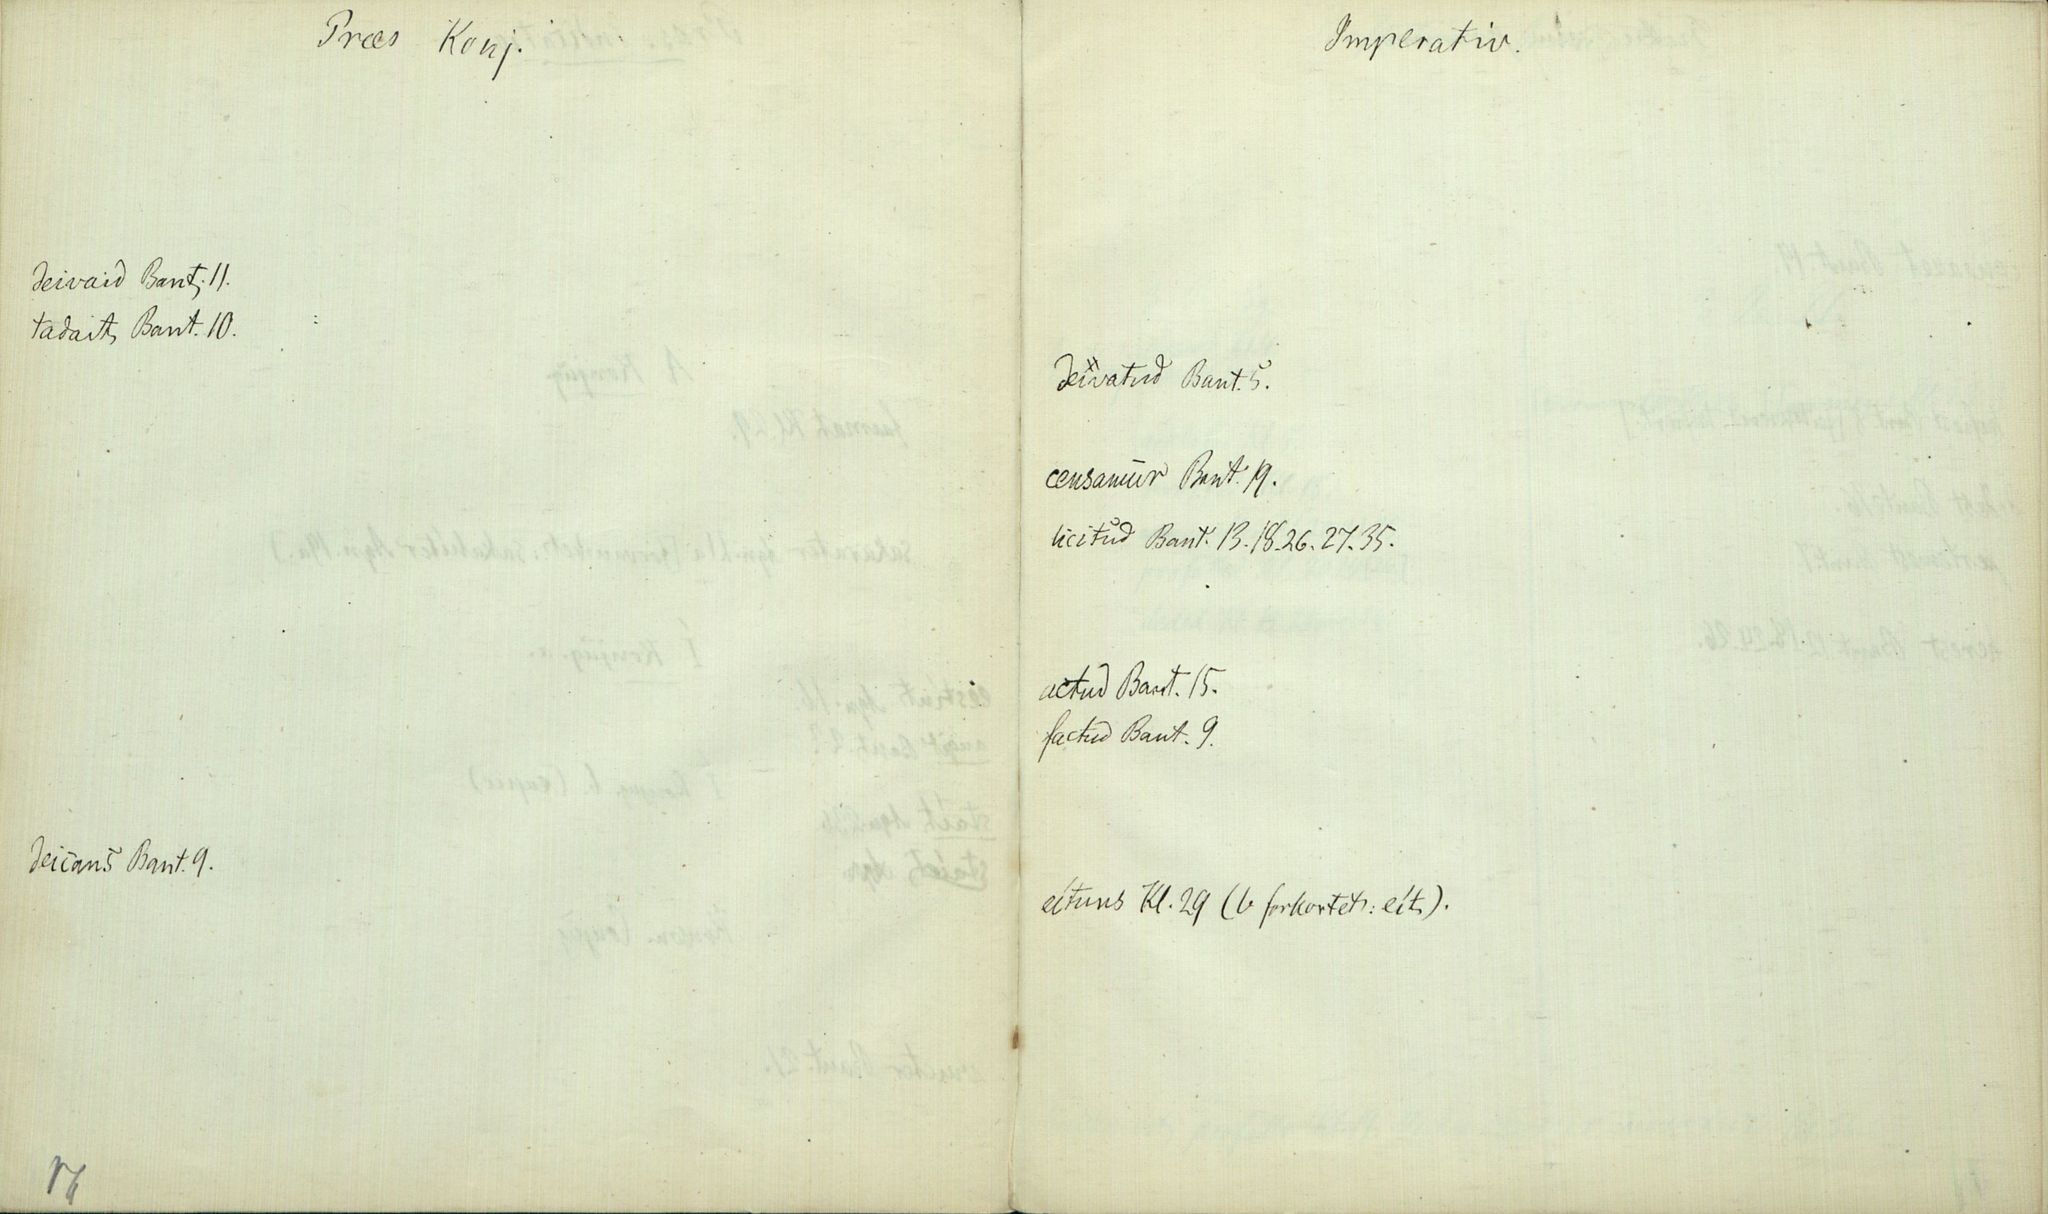 Præs Konj.
deivaid Bant. 11.
tadait Bant. 10.
deicans Bant. 9.
Imperativ.
deivatud Bant. 5.
censamur Bant. 19.
licitud Bant. 13. 18. 26. 27. 35.
actud Bant. 15.
factud Bant. 9.
eituns Kl. 29 (b forkortet: eit).